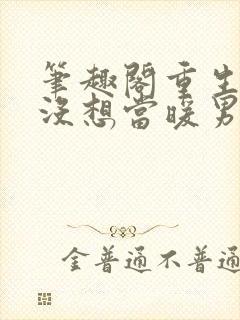 筆趣閣重生
沒想當暖男
金普通不普通